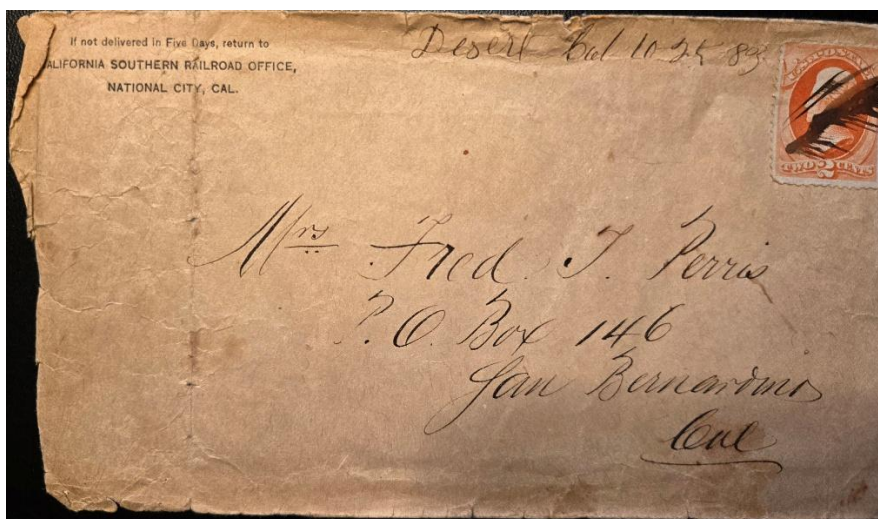 If not delivered in Five Days, return to
ALIFORNIA SOUTHERN RAILROAD OFFICE,
NATIONAL CITY, CAL.
Desert Cal 10 25 83
TWO 2 CENTS
Mrs Fred. T. Perris
P. O. Box 146
San Bernardino
Cal